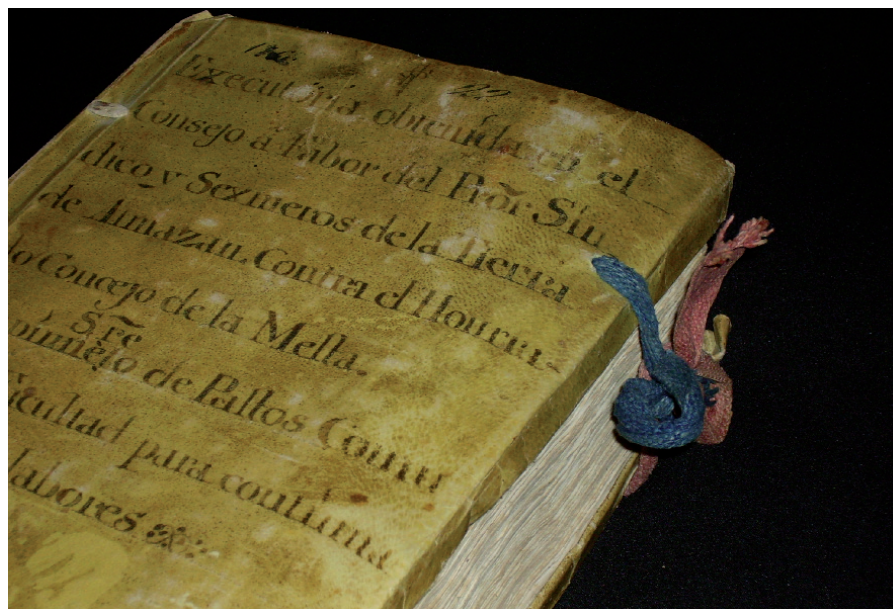 122
Executoria obtenida en el
Consejo â fabor del Pror. Sin
dico, y Sexmeros de la Tierra
de Almazan, Contra el Honrra-
do Concejo de la Mesta.
Sre
de Pastos Comu
para continua
labores